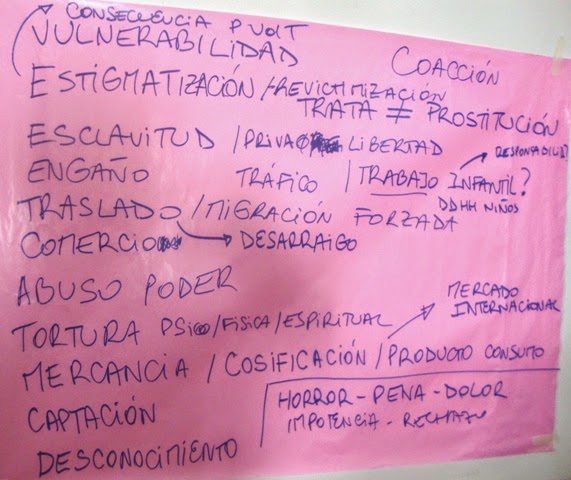 CONSECUENCIA P
VULNERABILIDAD
COACCIÓN
ESTIGMATIZACIÓN / REVICTIMIZACIÓN
TRATA ≠ PROSTITUCIÓN
ESCLAVITUD / PRIVA LIBERTAD
RESPONSABILID
ENGAÑO TRÁFICO / TRABAJO INFANTIL?
DDHH NIÑOS
TRASLADO / MIGRACIÓN FORZADA
COMERCIO → DESARRAIGO
ABUSO PODER
MERCADO
INTERNACIONAL
TORTURA PSICO / FÍSICA / ESPIRITUAL
MERCANCIA / COSIFICACIÓN / PRODUCTO CONSUMO
HORROR - PENA - DOLOR
CAPTACIÓN
IMPOTENCIA - RECHAZO
DESCONOCIMIENTO